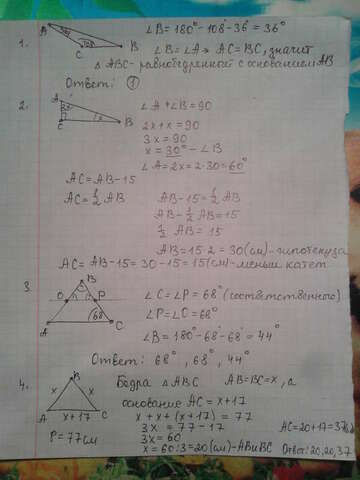 1. ∠B = 180° - 108 - 36 = 36°
∠B = ∠A ⇒ AC = BC, значит
△ABC - равнобедренный с основанием AB
Ответ: ①
2. ∠A + ∠B = 90
2x + x = 90
3x = 90
x = 30° - ∠B
∠A = 2x = 2·30 = 60°
AC = AB - 15
AC = 1/2 AB
AB - 15 = 1/2 AB
AB - 1/2 AB = 15
AB = 15
AB = 15·2 = 30 (см) - гипотенуза
AC = AB - 15 = 30 - 15 = 15 (см) - меньш катет
3. ∠C = ∠P = 68° (соответственного)
∠P = ∠O = 68°
∠B = 180° - 68° - 68° = 44°
Ответ: 68°, 68°, 44°
4. Бедра △ABC AB = BC = x, а
основание AC = x + 17
x + x + (x + 17) = 77
3x = 77 - 17
3x = 60
x = 60 : 3 = 20 (см) - AB и BC
AC = 20 + 17 = 37
Ответ: 20, 20, 37
A B C
108
A C B
x
B O P A C
68
B A C
x x
x + 17
P = 77 см